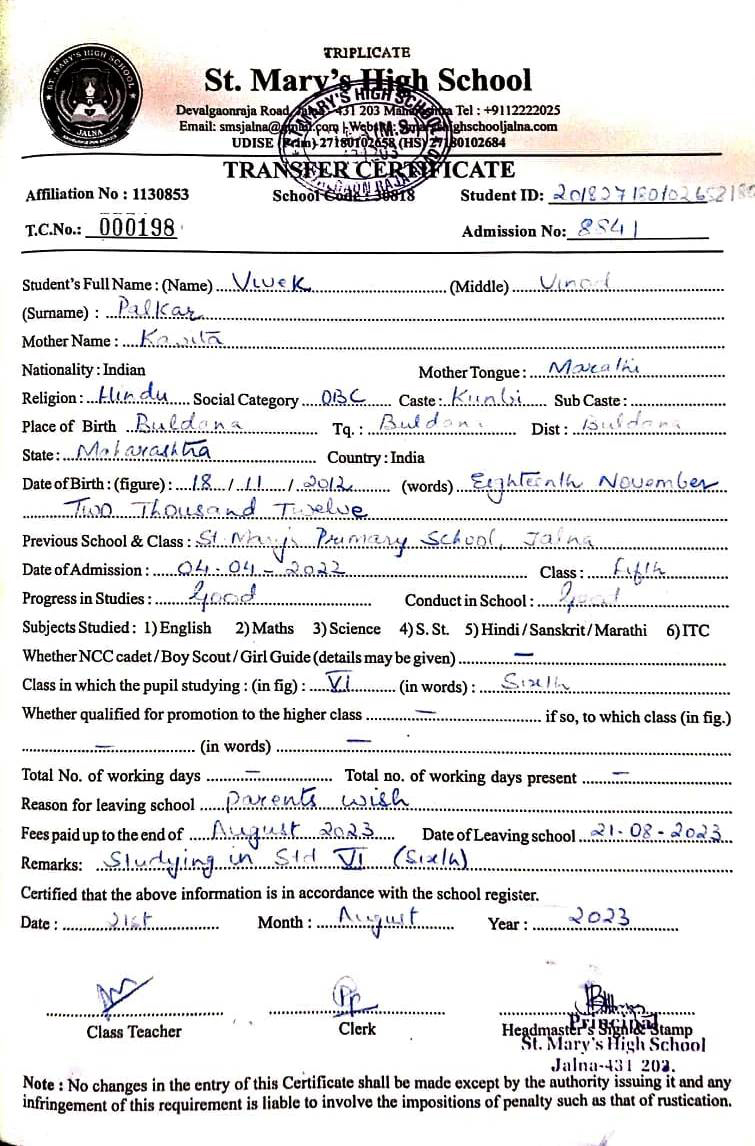 TRIPLICATE
St. Mary's High School
Devalgaonraja Road, Jalna-431 203 Maharashtra Tel : +9112222025
Email: smsjalna@gmail.com | Website: highschooljalna.com
UDISE (Prim)-27180102658 (HS) 27180102684
TRANSFER CERTIFICATE
Affiliation No : 1130853 School Code : 30818 Student ID: 
T.C.No.: 000198 Admission No: 8841
Student's Full Name : (Name) Vivek (Middle) Vinod
(Surname) : Palkar
Mother Name : Kavita
Nationality : Indian Mother Tongue : Marathi
Religion : Hindu Social Category OBC Caste : Kunbi Sub Caste :
Place of Birth Buldana Tq. : Buldana Dist : Buldana
State : Maharashtra Country : India
Date of Birth : (figure) : 18 / 11 / 2012 (words) Eighteenth November
Two Thousand Twelve
Previous School & Class : St. Mary's Primary School, Jalna
Date of Admission : 04-04-2022 Class : Fifth
Progress in Studies : Good Conduct in School : Good
Subjects Studied : 1) English 2) Maths 3) Science 4) S. St. 5) Hindi / Sanskrit / Marathi 6) ITC
Whether NCC cadet / Boy Scout / Girl Guide (details may be given) —
Class in which the pupil studying : (in fig) : VI (in words) : Sixth
Whether qualified for promotion to the higher class — if so, to which class (in fig.)
— (in words) —
Total No. of working days — Total no. of working days present —
Reason for leaving school parents wish
Fees paid up to the end of August 2023 Date of Leaving school 21-08-2023
Remarks: Studying in Std VI (Sixth)
Certified that the above information is in accordance with the school register.
Date : 21st Month : August Year : 2023
Class Teacher Clerk Headmaster's Sign & Stamp
Principal
St. Mary's High School
Jalna-431 203.
Note : No changes in the entry of this Certificate shall be made except by the authority issuing it and any
infringement of this requirement is liable to involve the impositions of penalty such as that of rustication.